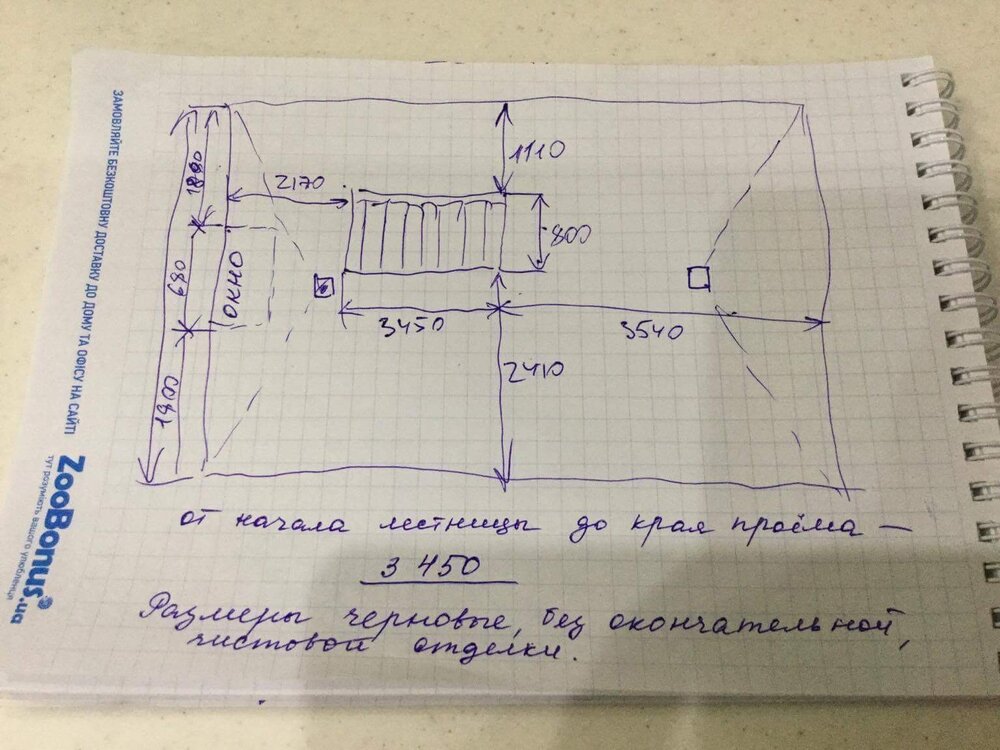 ЗАМОВЛЯЙТЕ БЕЗКОШТОВНУ ДОСТАВКУ ДО ДОМУ ТА ОФІСУ НА САЙТІ
ZooBonus.ua
тут розуміють вашого улюбленця
1110
2170
800
680
ОКНО
3450
3540
2410
1800
от начала лестницы до края проёма —
3 450
Размеры черновые, без окончательной,
чистовой отделки.